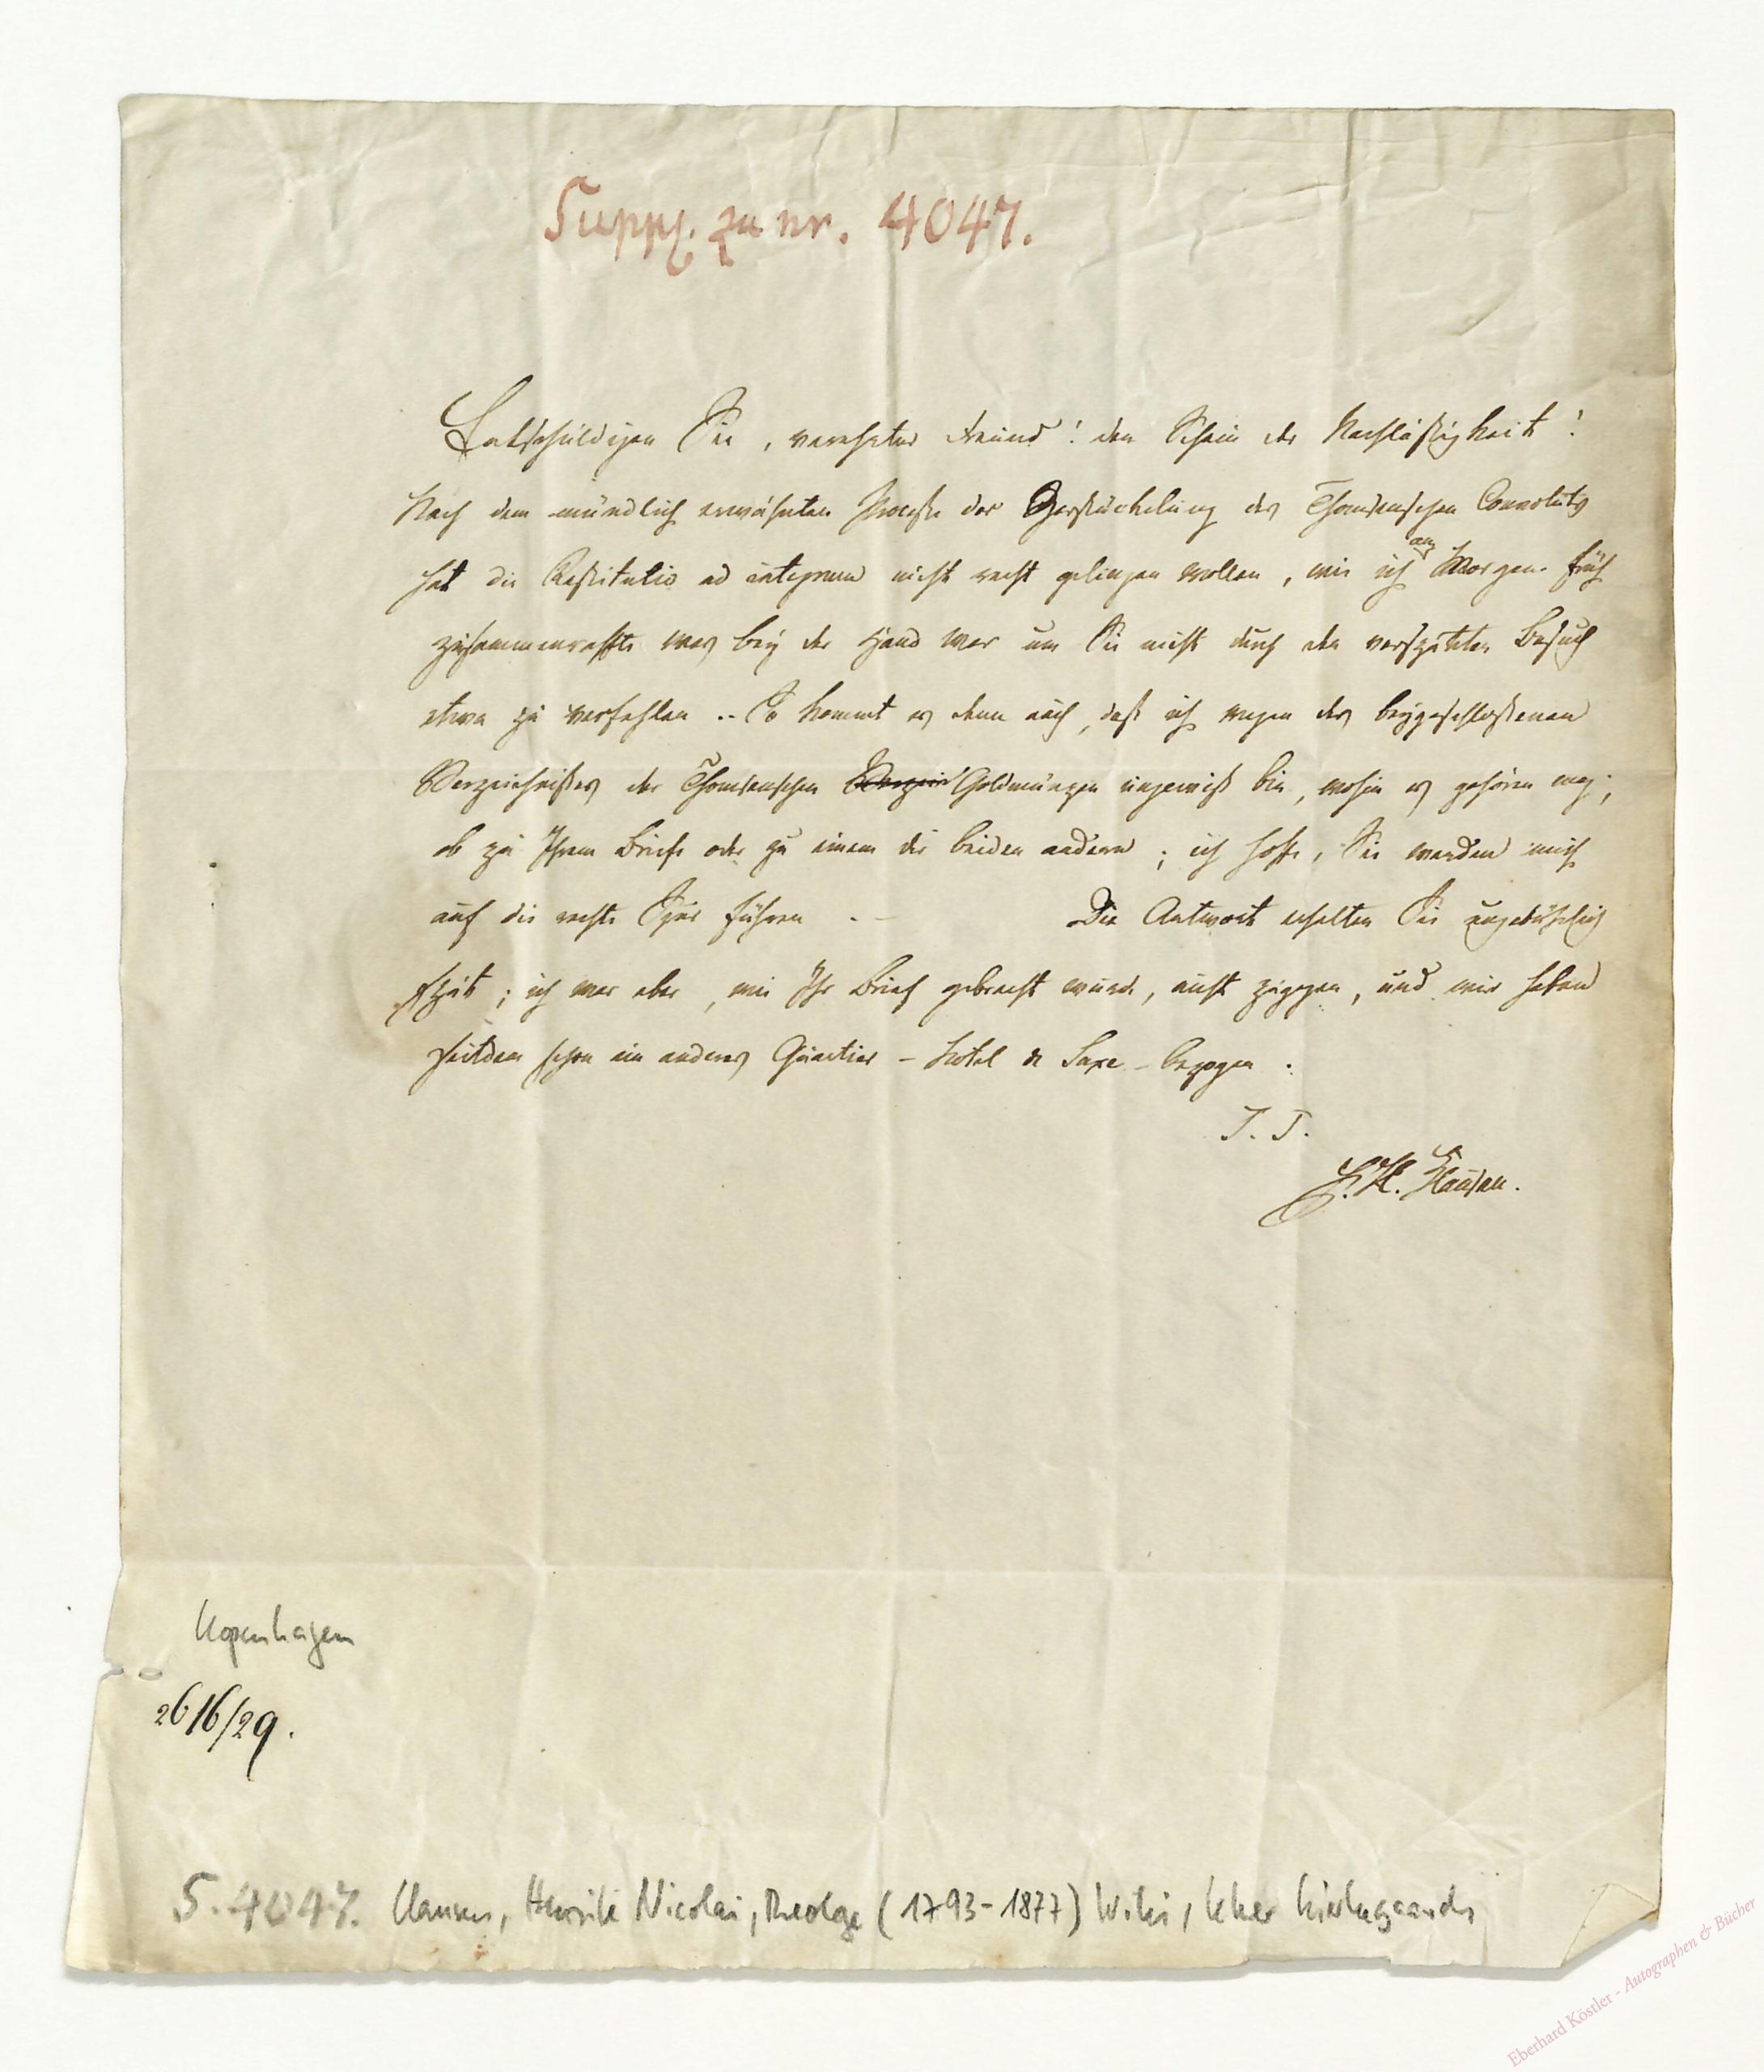 Suppl. zu nr. 4047.
Entschuldigen Sie, verehrter Freund! den Schein der Nachläßigkeit!
Nach dem mündlich erwähnten Proceße der Zerstückelung des Thomsenschen Convoluts
hat die Restitutio ad integrum nicht recht gelingen wollen, wie ich am Morgen früh
zusammenraffte was bey der Hand war um Sie nicht durch den verspäteten Besuch
etwa zu verfehlen .. So kommt es denn auch, daß ich wegen des beygeschloßenen
Verzeichnißes der Thomsenschen Goldmünzen ungewiß bin, wohin es gehören mag;
ob zu Ihrem Briefe oder zu einem der beiden andern; ich hoffe, Sie werden mich
auf die rechte Spur führen . – Die Antwort erhalten Sie ungebührlich
spät; ich war aber, wie Ihr Brief gebracht wurde, nicht zugegen, und wir haben
seitdem schon ein anderes Quartier – Hotel de Saxe – bezogen.
T. T.
H. N. Clausen.
Kopenhagen
26 16/29.
S. 4047. Clausen, Henrik Nicolai, Theologe (1793-1877) Wiki, Lehrer Kierkegaards
Eberhard Köstler - Autographen & Bücher